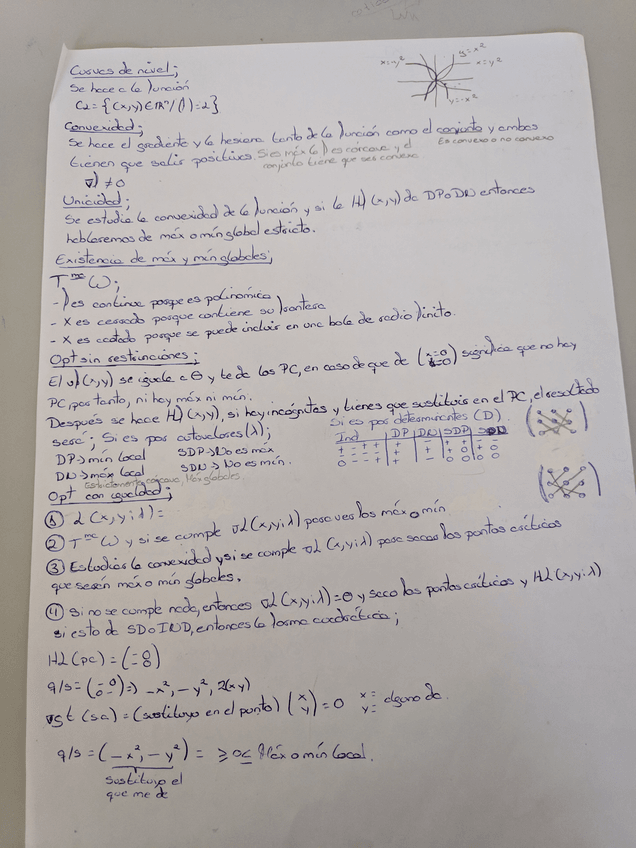 Curvas de nivel;
Se hace a la función
C2 = {(x,y) ∈ ℝⁿ / f() = 2}
x=-y² y=x² x=y² y=-x²
Convexidad;
Se hace el gradiente y la hesiana tanto de la función como el conjunto y ambas
Es convexo o no convexo
tienen que salir positivas. Si es máx f() es cóncava y el
conjunto tiene que ser convexo
∇f ≠ 0
Unicidad;
Se estudia la convexidad de la función y si la Hf(x,y) da DP o DN entonces
hablaremos de máx o mín global estricto.
Existencia de máx y mín globales;
T W;
- f es continua porque es polinómica
- X es cerrado porque contiene su frontera
- X es acotado porque se puede incluir en una bola de radio finito.
Opt sin restricciones;
El ∇f(x,y) se iguala a θ y te da los PC, en caso de que de significa que no hay
PC, por tanto, ni hay máx ni mín.
Después se hace Hf(x,y), si hay incógnitas y tienes que sustituir en el PC, el resultado
será; Si es por autovalores (λ);
Si es por determinantes (D).
DP → mín local SDP → No es máx
DN → máx local SDN → No es mín.
Ind DP DN SDP SDN
Estrictamente cóncava, Máx globales.
Opt con igualdad;
① L(x,y;λ)=
② T W y si se cumple ∇L(x,y;λ) para ver los máx o mín
③ Estudiar la convexidad y si se cumple ∇L(x,y;λ) para sacar los puntos críticos
que serán máx o mín globales.
④ Si no se cumple nada, entonces ∇L(x,y;λ)=θ y saco los puntos críticos y HL(x,y;λ)
si esto da SD o IND, entonces la forma cuadrática;
HL(pc) = (- 0 - 0)
q/s = (- 0 0 -) => -x², -y², 2(xy)
∇St(sa) = (sustituyo en el punto) (x y) = 0 x= y= alguno da.
q/s = (-x², -y²) = ≥ 0 ≤ Máx o mín local.
sustituyo el
que me da